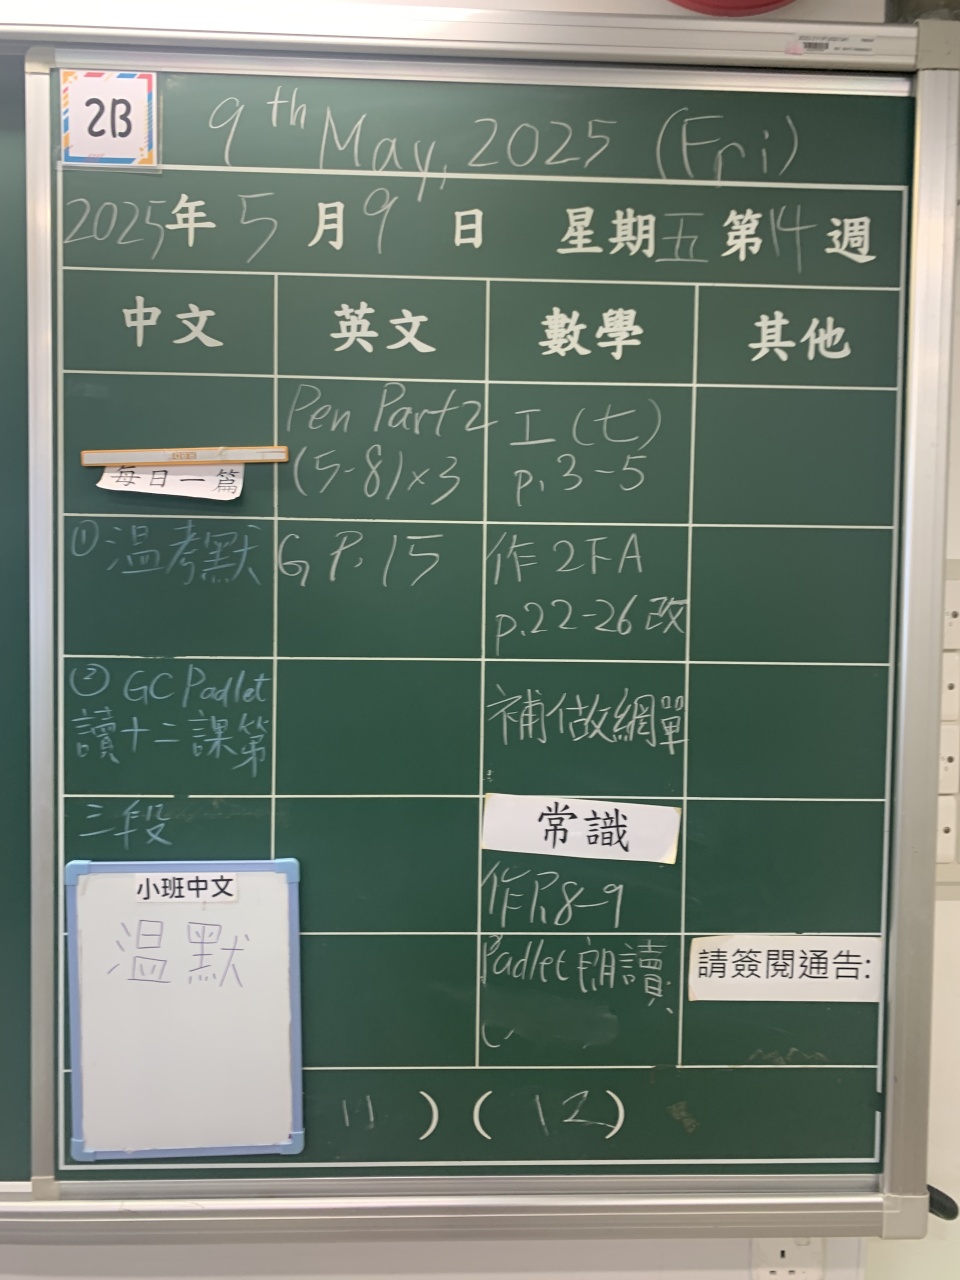 2B
9th May, 2025 (Fri)
2025年5月9日 星期五第14週
中文 英文 數學 其他
每日一篇
①温考默
②GC Padlet
讀十二課第
三段
小班中文
温默
Pen Part 2
(5-8)×3
G P.15
工(七)
p.3-5
作2FA
p.22-26改
補做網單
常識
作P.8-9
Padlet朗讀
請簽閱通告:
11 ) ( 12 )